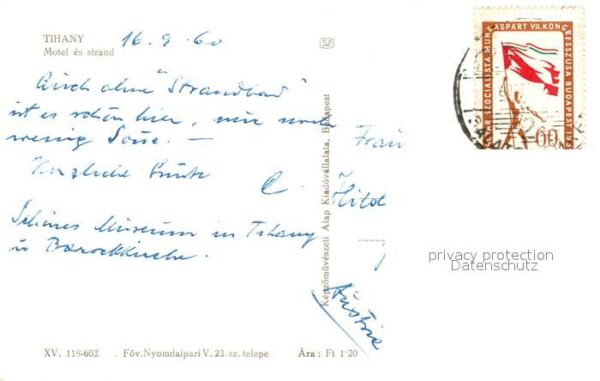 TIHANY
Motel és strand
16. 9. 60
Auch ohne "Strandbad"
ist es schön hier, nur noch
wenig Sonne. —
Herzliche Grüße
C.
Schönes Museum in Tihany
u Barockkirche.
SZ
Képzőművészeti Alap Kiadóvállalata, Budapest
Frau
Austria
SZOCIALISTA MUN ÁSPÁRT VII. KON GRESSZUSA BUDAPEST
60
privacy protection
Datenschutz
XV. 118-602 . Főv. Nyomdaipari V. 23. sz. telepe Ára : Ft 1·20